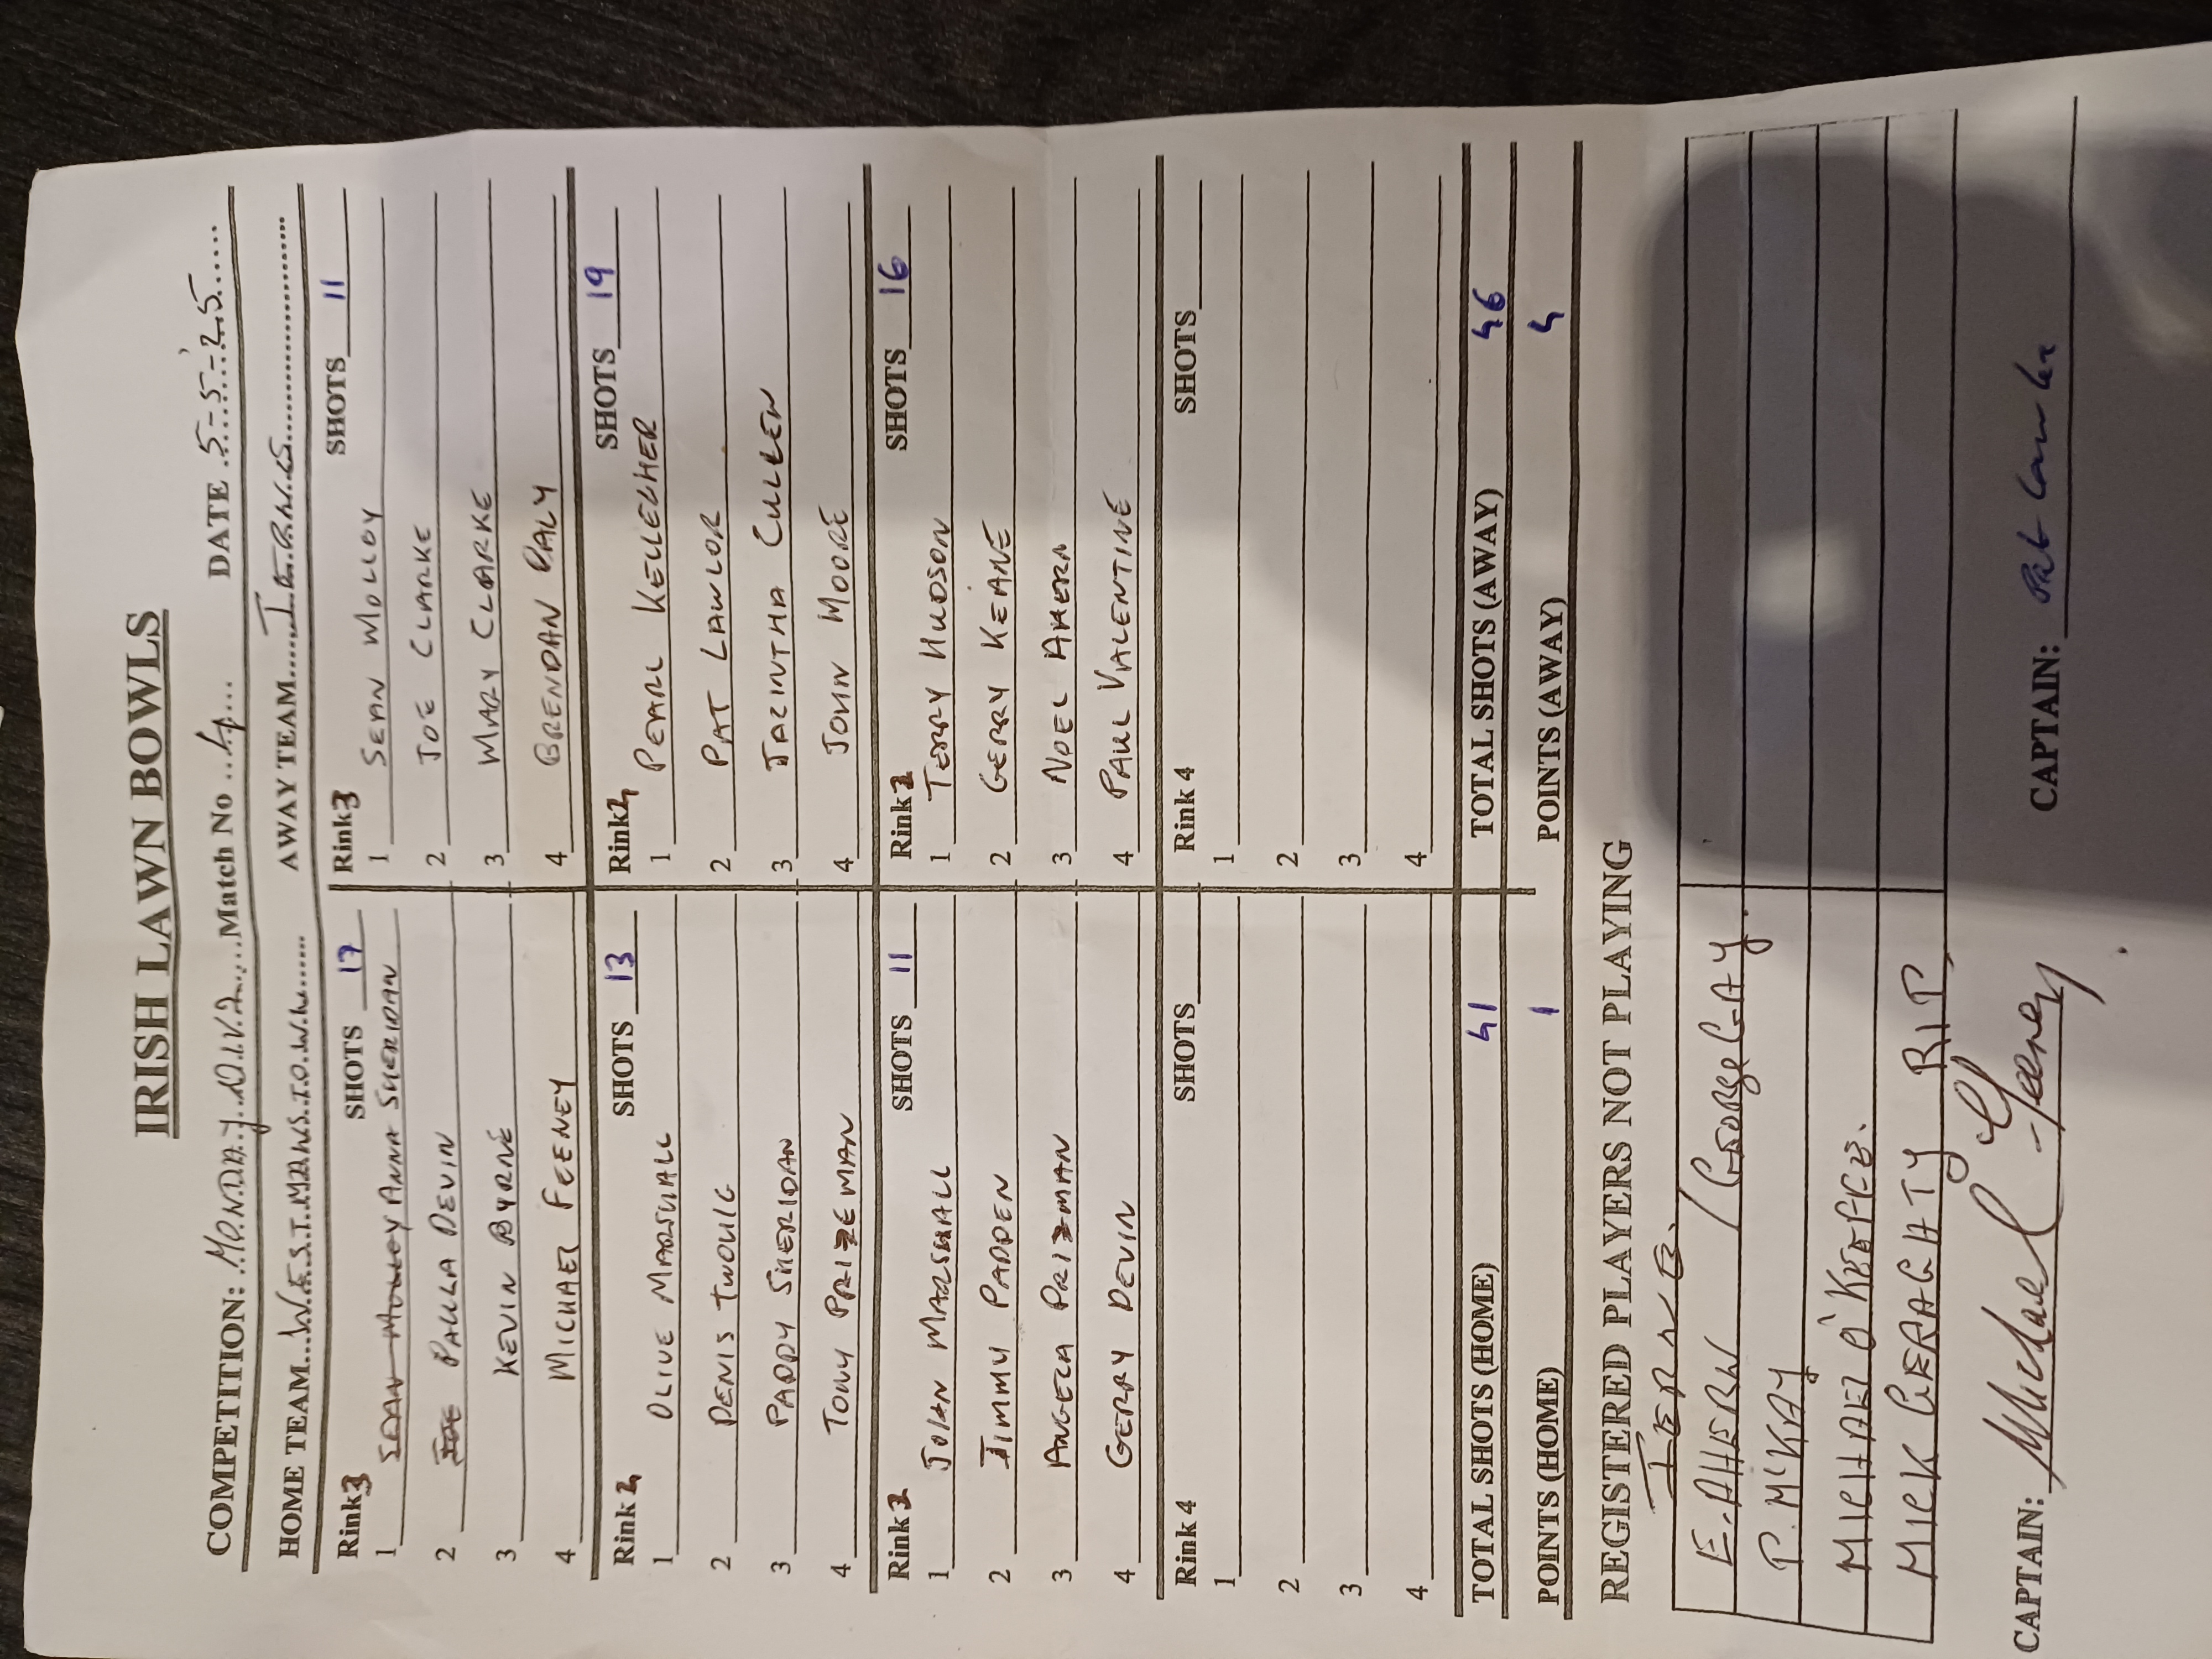 IRISH LAWN BOWLS
COMPETITION: MONDAY DIV.2 Match No 4 DATE 5-5-25
HOME TEAM WESTMANSTOWN AWAY TEAM IERNES
Rink 3 SHOTS 17 Rink 3 SHOTS 11
1 SEAN MOLLOY ANNA SHERIDAN 1 SEAN MOLLOY
2 JOE PAULA DEVIN 2 JOE CLARKE
3 KEVIN BYRNE 3 MARY CLARKE
4 MICHAEL FEENEY 4 BRENDAN DALY
Rink SHOTS 13 Rink SHOTS 19
1 OLIVE MARSHALL 1 PEARL KELLEHER
2 DENIS TWOHIG 2 PAT LAWLOR
3 PADDY SHERIDAN 3 JACINTHA CULLEN
4 TONY PRIZEMAN 4 JOHN MOORE
Rink SHOTS 11 Rink SHOTS 16
1 JOAN MARSHALL 1 TERRY HUDSON
2 JIMMY PADDEN 2 GERRY KEANE
3 ANGELA PRIZMAN 3 NOEL AHERN
4 GERRY DEVIN 4 PAUL VALENTINE
Rink 4 SHOTS Rink 4 SHOTS
1 1
2 2
3 3
4 4
TOTAL SHOTS (HOME) 41 TOTAL SHOTS (AWAY) 46
POINTS (HOME) 1 POINTS (AWAY) 4
REGISTERED PLAYERS NOT PLAYING
IERNE.
E. AHERN / GEORGE GAY.
P. McKAY
MICHAEL O'KEAFFE.
MICK GERAGHTY RIP
CAPTAIN: Michael G Feeney CAPTAIN: Pat Lawlor